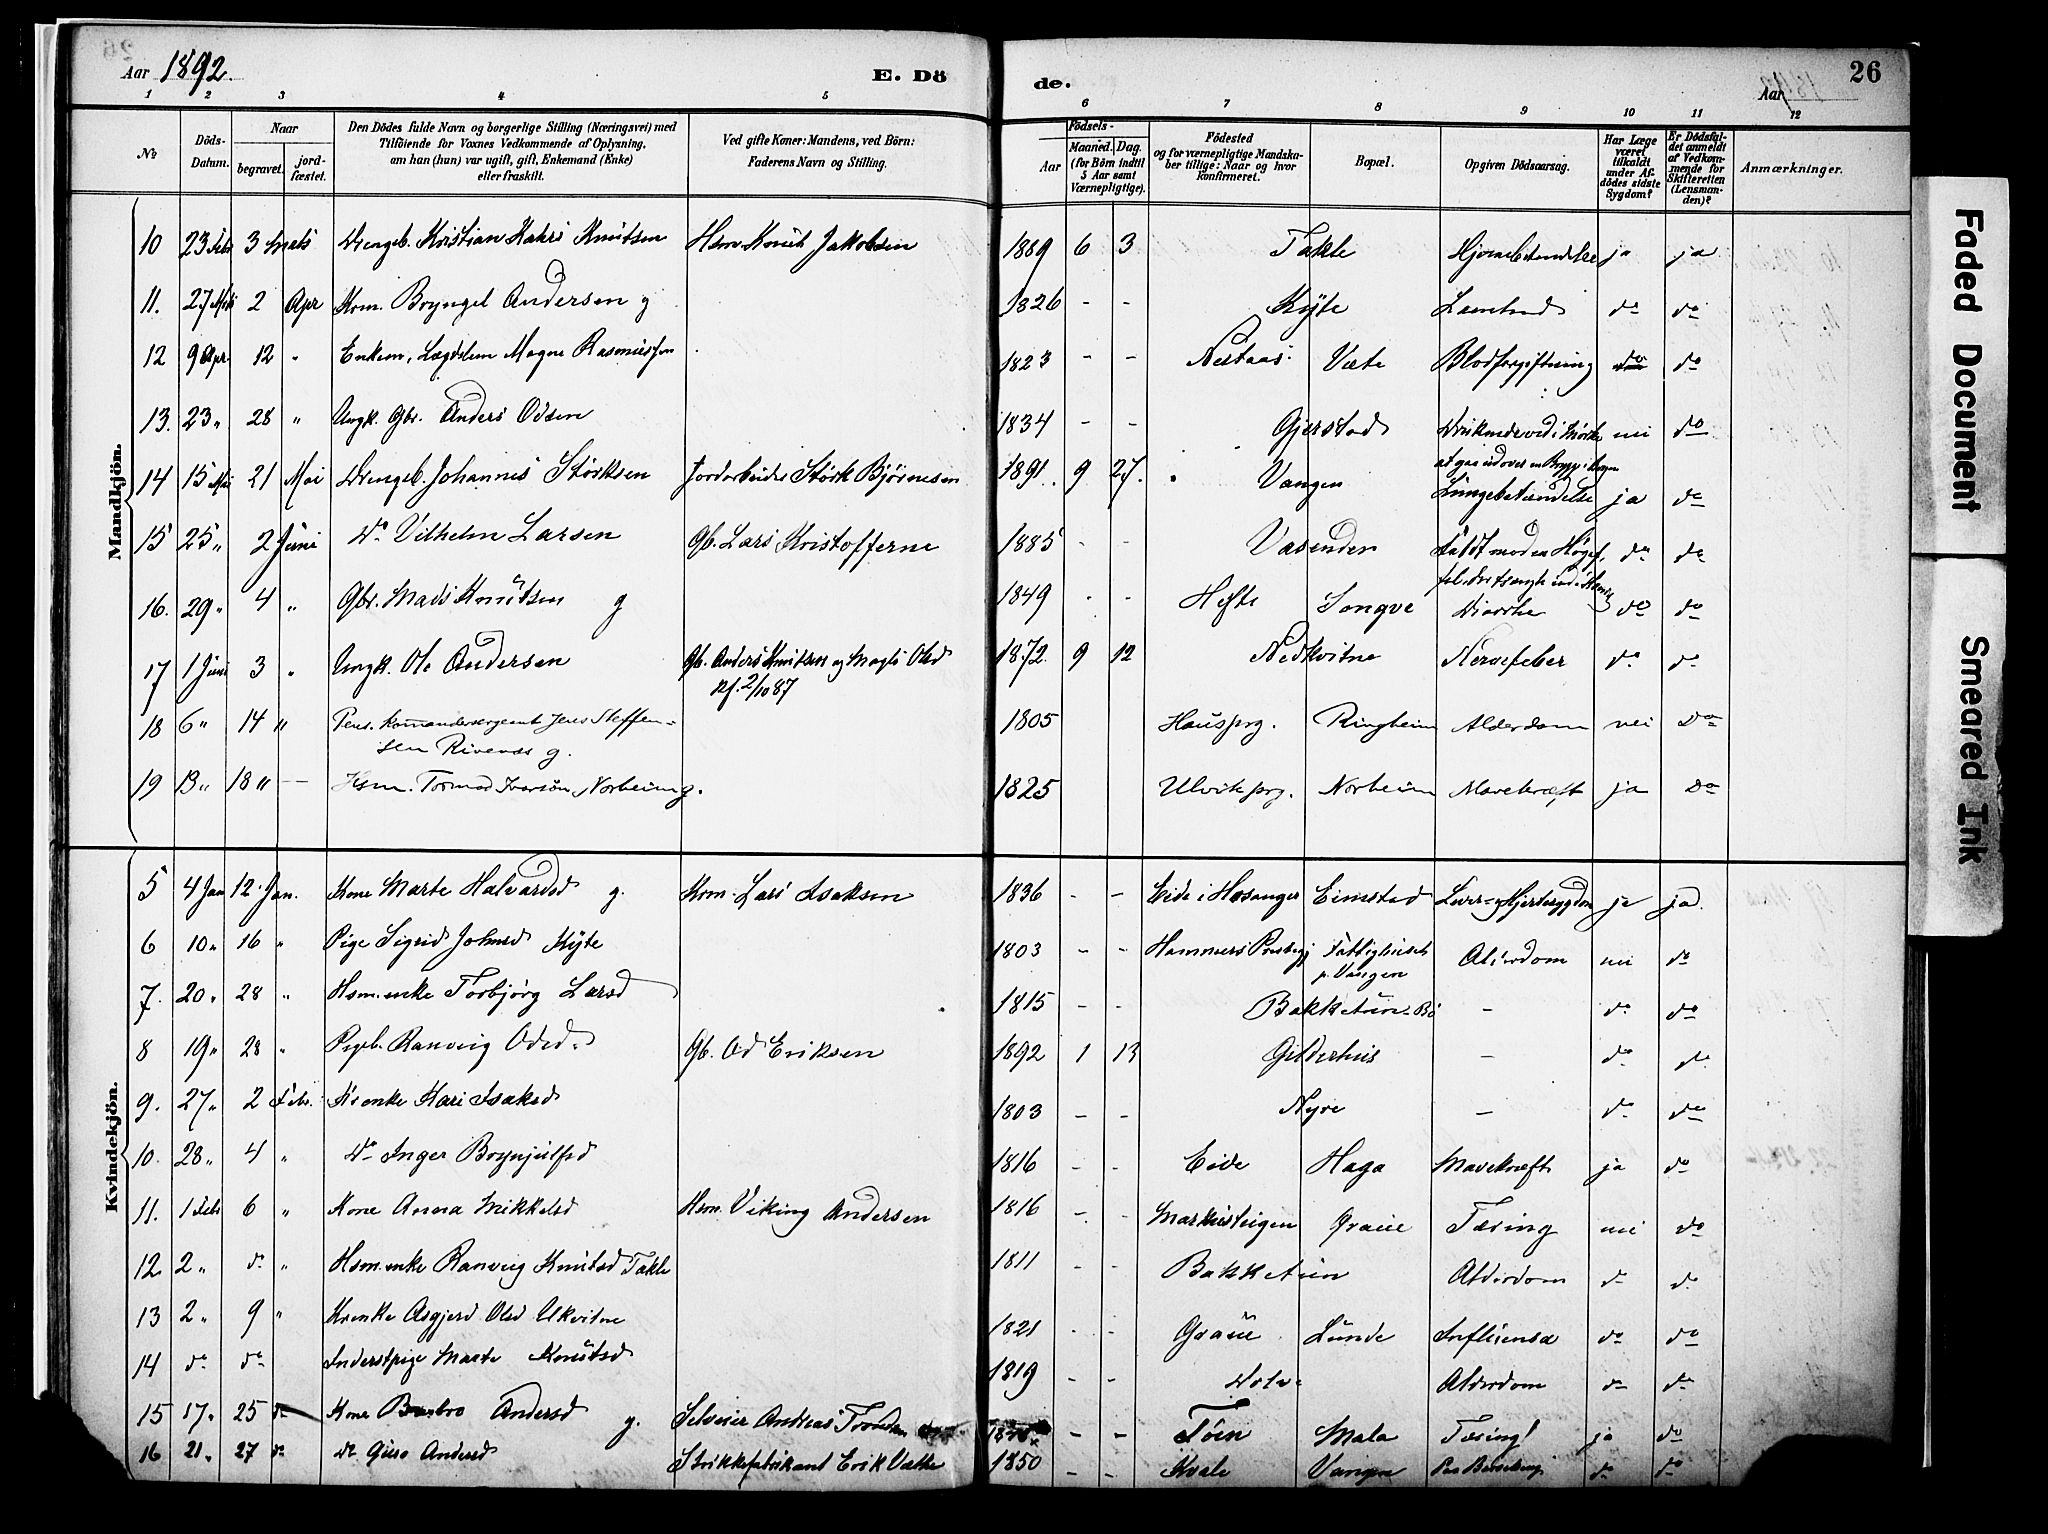 Aar 1892. E. Döde. Aar 26
1 2 3 4 5 6 7 8 9 10 11 12
№ Döds-Datum. Naar begravet. jordfæstet. Den Dödes fulde Navn og borgerlige Stilling (Næringsvei) med Tilföiende for Voxnes Vedkommende af Oplysning, am han (hun) var ugift, gift, Enkemand (Enke) eller fraskilt. Ved gifte Koner: Mandens, ved Börn: Faderens Navn og Stilling. Födsels- Aar Maaned. Dag. (for Börn indtil 5 Aar samt Værnepligtige). Födested og for værnepligtige Mandskaber tillige: Naar og hvor konfirmeret. Bopæl. Opgiven Dödsaarsag. Har Læge været tilkaldt under Afdödes sidste Sygdom? Er Dödsfaldet anmeldt af Vedkommende for Skifteretten (Lensmanden)? Anmærkninger.
Mandkjön.
10 23 Febr 3 Marts Drengeb. Kristian Knutsen Hsm Knut Jakobsen 1889 6 3 Takle ja ja
11. 27 2 Apr Krm. Bryngel Andersen g 1826 - - Kyte do do
12 9 Apr. 12 " Enkem. Lægdslem Magne Rasmussen 1823 - - Nestaas Væte Blodforgiftning do do
13. 23 " 28 " Ungk. Gbr. Anders Odsen 1834 - - Gjerstad nei do
14 15 Mai 21 Mai Drengeb. Johannes Størksen Jordarbeider Størk Bjørnesen 1891. 9 27. Vangen Lungebetændelse ja do
15 25 " 2 Juni Do Vilhelm Larsen Gb. Lars Kristofferne 1885 - - Vasenden do do
16. 29 " 4 " Gbr. Mads Knutsen g 1849 - - Hefte Songve Diarrhe do do
17 1 Juni 3 " Ungk. Ole Andersen Gb. Anders Knutsen og Magli Olsd 1872. 9 12 Nedkvitne Nervefeber do do
Kf. 2/10 87
18 6 " 14 " Pens. Kommandersergeant Jens Steffen- 1805 Hausprg. Ringheim Alderdom nei Do
sen Rivenæs g.
19 13 " 18 " — Hsm. Tormod Iversön Norheim g. 1825 Ulvikprg. Norheim Mavekræft ja Do
Kvindekjön.
5 4 Jan 12. Jan. Kone Marte Halvardsd g. Krm. Lars Isaksen 1836 - - Eide i Hosanger Eimstad Lever- og Hjertesygdom ja ja
6 10 " 16 " Pige Sigrid Johnsd Kyte 1803 - - Hammers Prestegj Fattighuset p. Vangen Alderdom nei do
7. 20 " 28 " Hsm.enke Torbjørg Larsd 1815 - - Bakketun - Bø - do do
8 19 " 28 " Pigeb. Ranveig Odsd. Gb. Od Eriksen 1892 1 13 Gilderhus - do do
9. 27 " 2 Febr. Krenke Kari Isaksd 1803 - - Nyre - do do
10. 28 " 4 " Do Inger Brynjulfsd 1816 - - Eide Haga Mavekræft ja do
11. 1 Febr 6 " Kone Anna Mikkelsd Hsm. Viking Andersen 1816 - - Markusteigen Graue Tæring nei do
12. 2 " do " Hsm.enke Ranveig Knutsd Takle 1811 - - Bakketun Alderdom do do
13 2 " 9 " Krenke Asgjerd Olsd Ukvitne 1821 - - Graue Lunde Influensa do do
14 do do Inderstpige Marte Knutsd 1819 - - Alderdom do do
15 17 " 25 do Kone Brabro Andersd g. Selveier Andreas - - Töen Mala Tæring ja do
16 21 " 27 do Do Guro Andersd Strikkefabrikant Erik Vætte 1850 - - Kvale Vangen do do
Faded Document
Smeared Ink